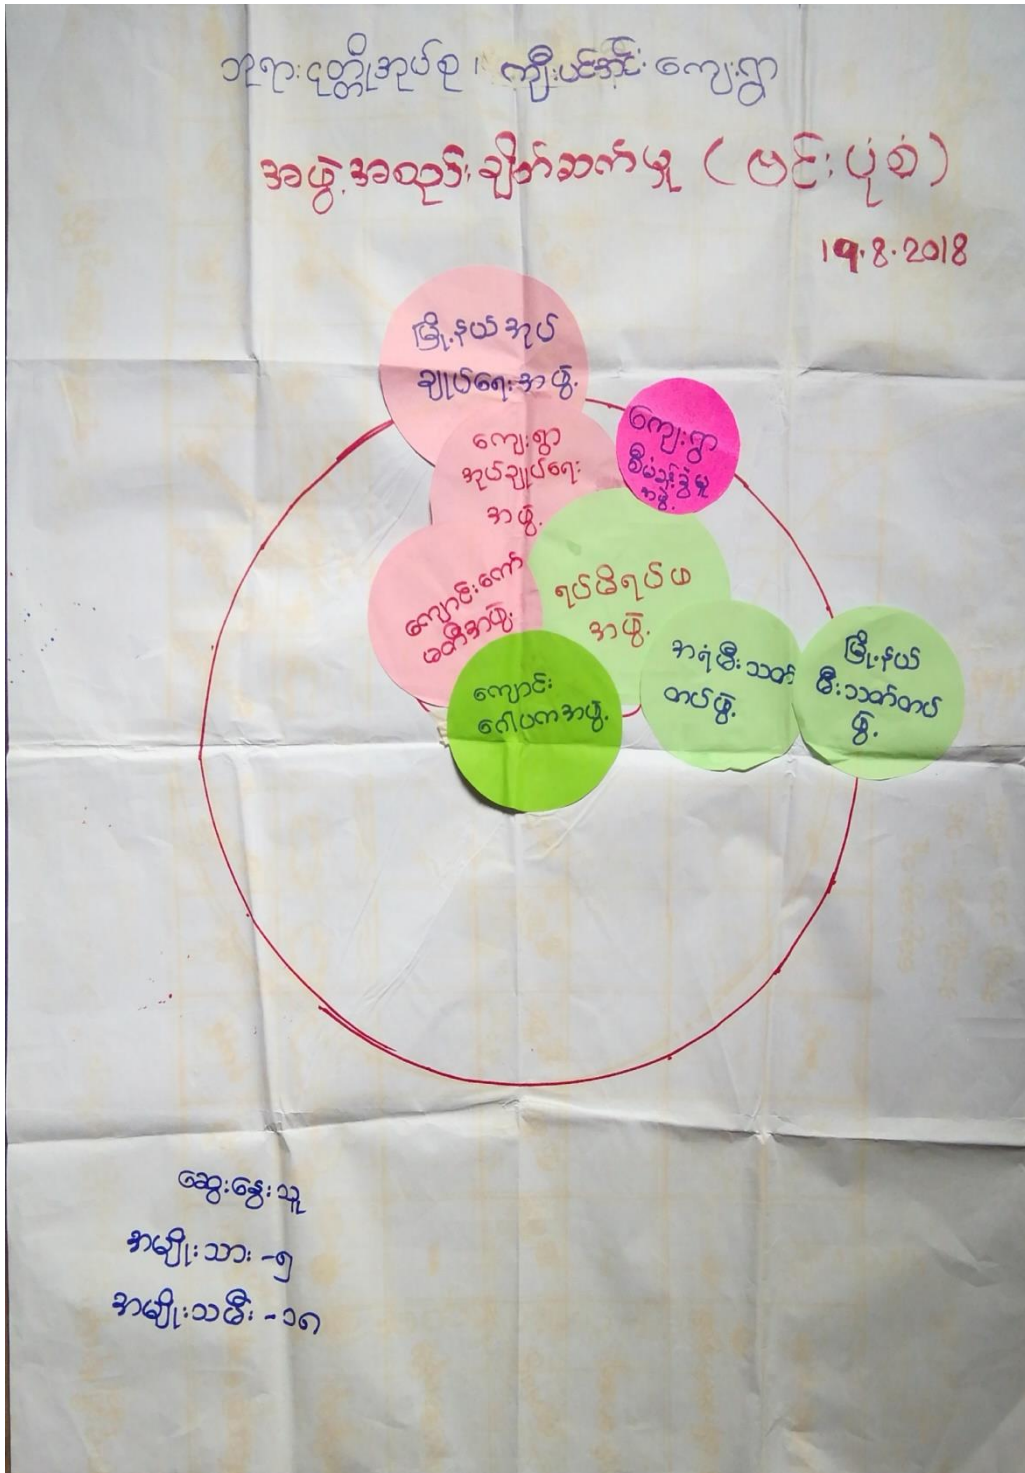 ဘုရားငုတ္တိုအုပ်စု၊ ကျီးပင်အိုင်းကျေးရွာ
အဖွဲ့အစည်းချိတ်ဆက်မှု (ဗင်းပုံစံ)
19.8.2018
မြို့နယ်အုပ်
ချုပ်ရေးအဖွဲ့
ကျေးရွာ
အုပ်ချုပ်ရေး
အဖွဲ့
ကျေးရွာ
စီမံခန့်ခွဲမှု
အဖွဲ့
ကျောင်းကော်
မတီအဖွဲ့
ရပ်မိရပ်ဖ
အဖွဲ့
ကျောင်း
ဂေါပကအဖွဲ့
အရံမီးသတ်
တပ်ဖွဲ့
မြို့နယ်
မီးသတ်တပ်
ဖွဲ့
ဆွေးနွေးသူ
အမျိုးသား -၅
အမျိုးသမီး -၁၈